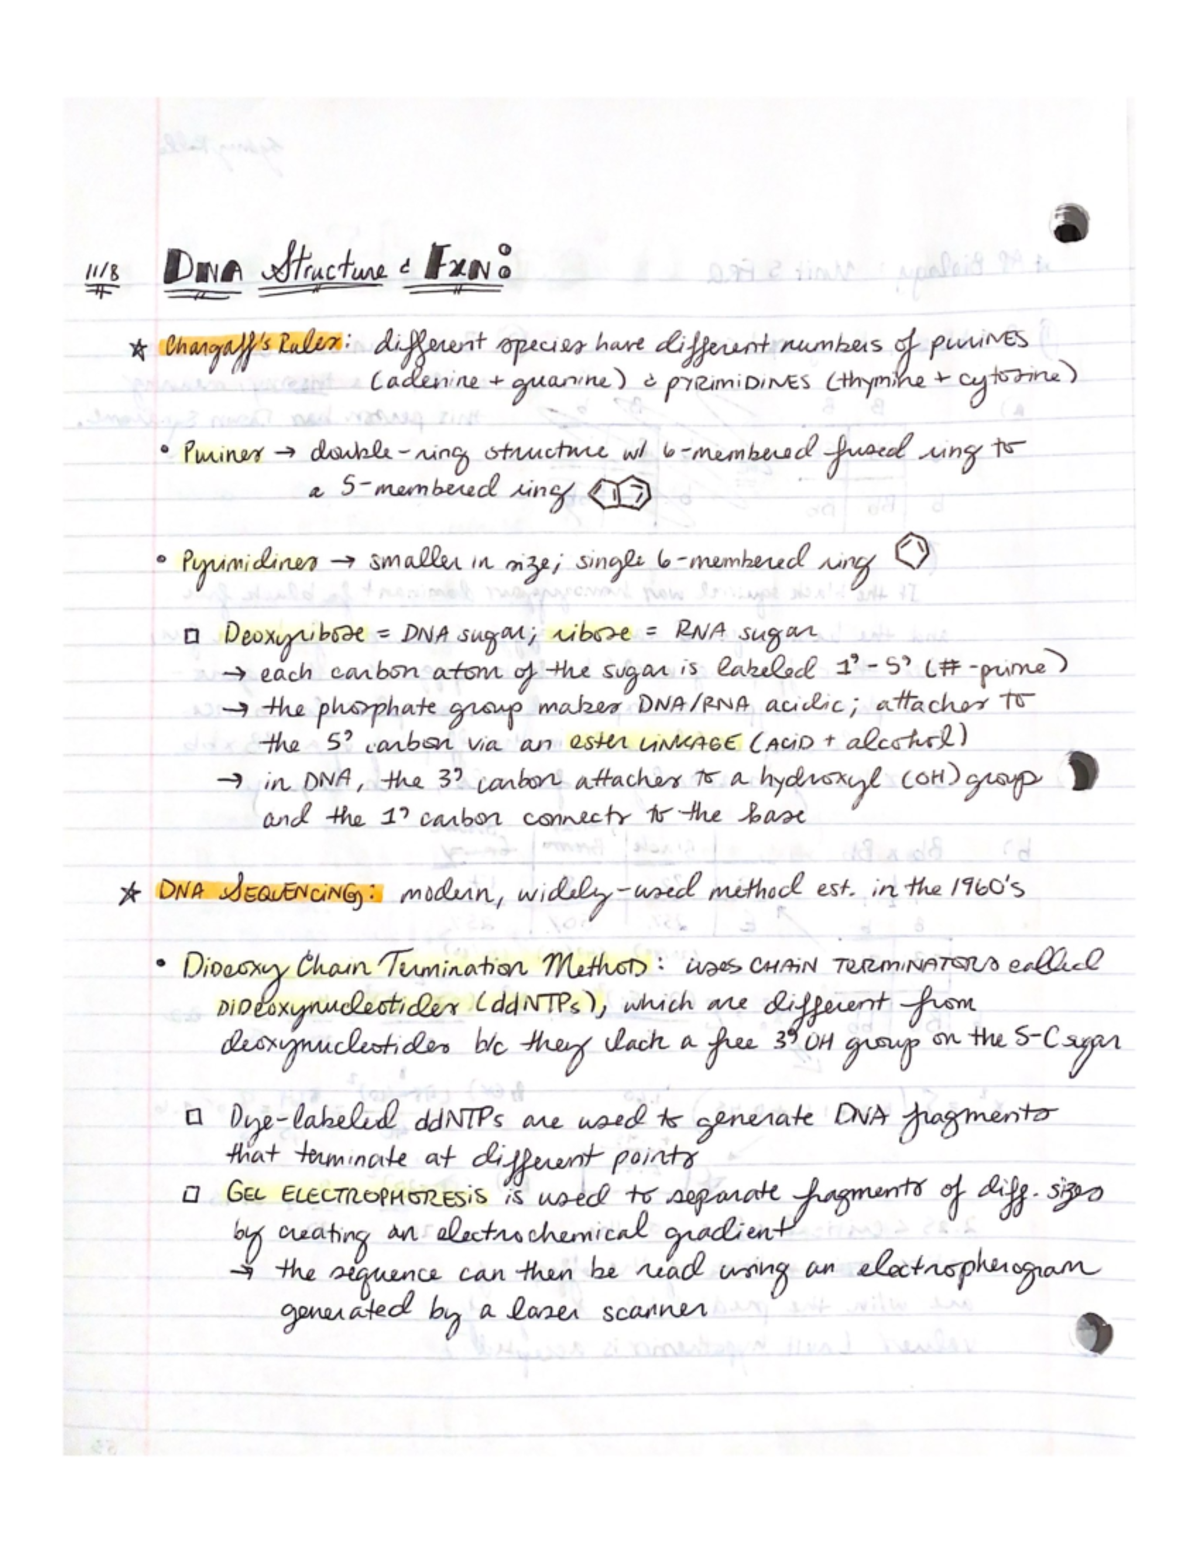 11/8 DNA Structure & FXN:
☆ Chargaff's Rules: different species have different numbers of PURINES
(adenine + guanine) & PYRIMIDINES (thymine + cytosine)
• Purines → double-ring structure w/ 6-membered fused ring to
a 5-membered ring
• Pyrimidines → smaller in size; single 6-membered ring
□ Deoxyribose = DNA sugar; ribose = RNA sugar
→ each carbon atom of the sugar is labeled 1' - 5' (#-prime)
→ the phosphate group makes DNA/RNA acidic; attaches to
the 5' carbon via an ester LINKAGE (ACID + alcohol)
→ in DNA, the 3' carbon attaches to a hydroxyl (OH) group
and the 1' carbon connects to the base
☆ DNA SEQUENCING: modern, widely-used method est. in the 1960's
• Dideoxy Chain Termination Method: uses CHAIN TERMINATORS called
DIDeoxynucleotides (ddNTPs), which are different from
deoxynucleotides b/c they lack a free 3' OH group on the 5-C sugar
□ Dye-labeled ddNTPs are used to generate DNA fragments
that terminate at different points
□ GEL ELECTROPHORESIS is used to separate fragments of diff. sizes
by creating an electrochemical gradient
→ the sequence can then be read using an electropherogram
generated by a laser scanner